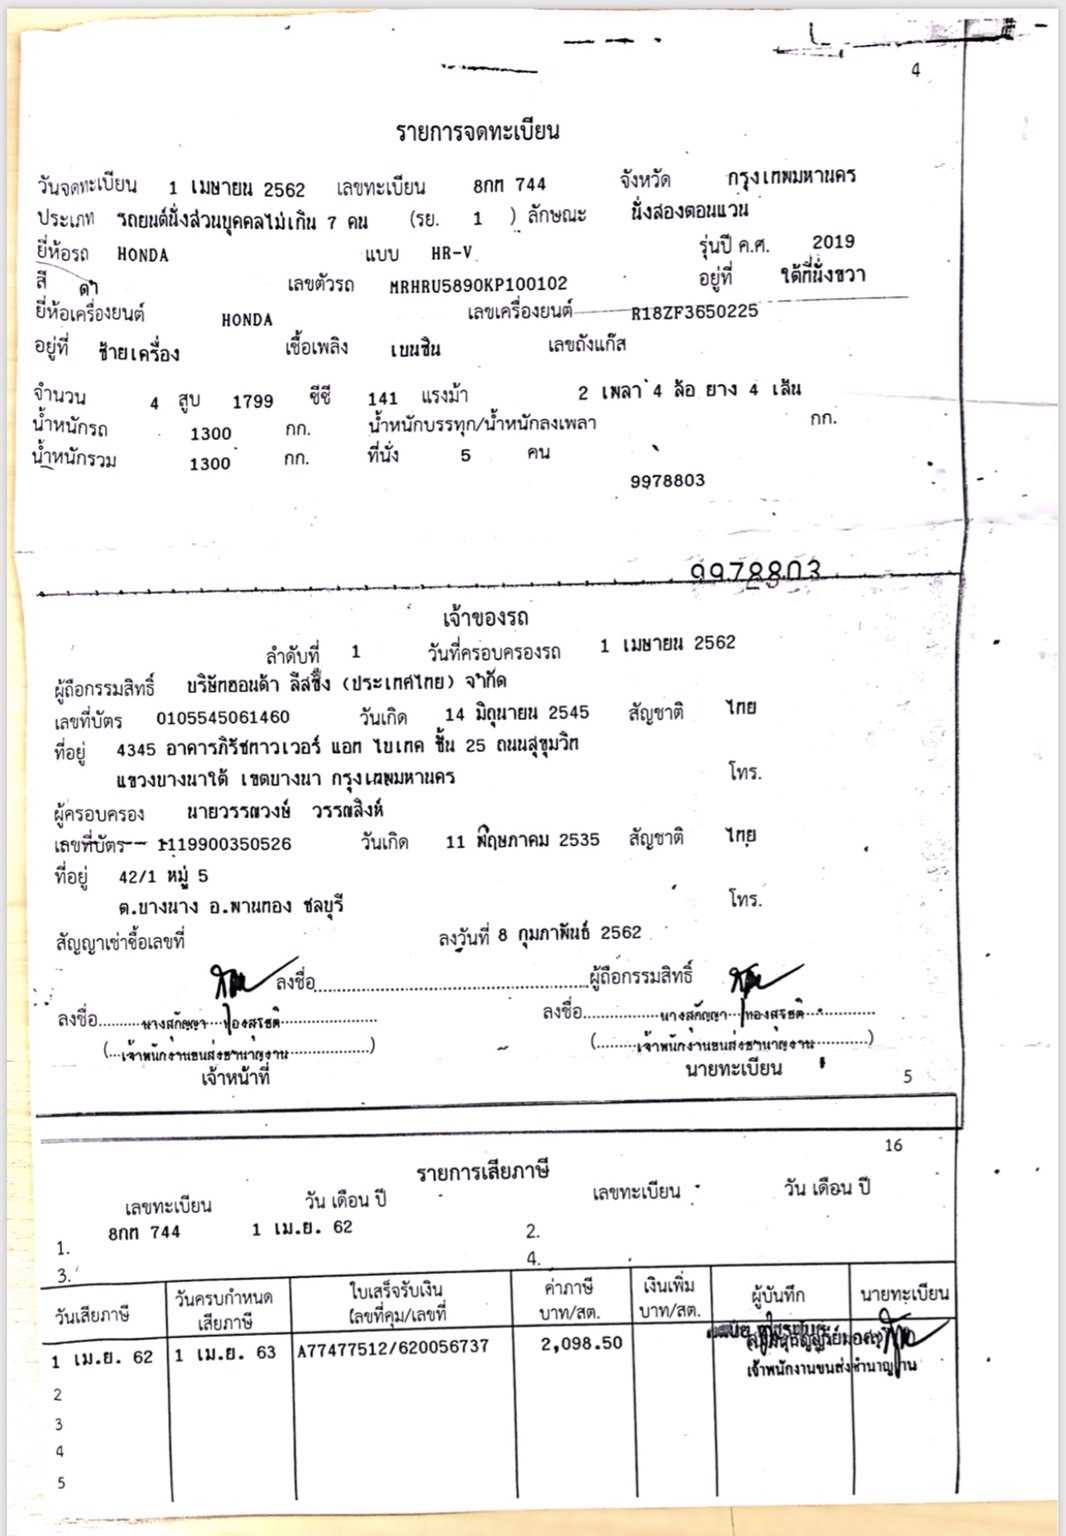 4
รายการจดทะเบียน
วันจดทะเบียน 1 เมษายน 2562 เลขทะเบียน 8กท 744 จังหวัด กรุงเทพมหานคร
ประเภท รถยนต์นั่งส่วนบุคคลไม่เกิน 7 คน (รย. 1 ) ลักษณะ นั่งสองตอนแวน
ยี่ห้อรถ HONDA แบบ HR-V รุ่นปี ค.ศ. 2019
สี ดำ เลขตัวรถ MRHRU5890KP100102 อยู่ที่ ใต้ที่นั่งขวา
ยี่ห้อเครื่องยนต์ HONDA เลขเครื่องยนต์ R18ZF3650225
อยู่ที่ ซ้ายเครื่อง เชื้อเพลิง เบนซิน เลขถังแก๊ส
จำนวน 4 สูบ 1799 ซีซี 141 แรงม้า 2 เพลา 4 ล้อ ยาง 4 เส้น
น้ำหนักรถ 1300 กก. น้ำหนักบรรทุก/น้ำหนักลงเพลา กก.
น้ำหนักรวม 1300 กก. ที่นั่ง 5 คน
9978803
9978803
เจ้าของรถ
ลำดับที่ 1 วันที่ครอบครองรถ 1 เมษายน 2562
ผู้ถือกรรมสิทธิ์ บริษัทฮอนด้า ลีสซิ่ง (ประเทศไทย) จำกัด
เลขที่บัตร 0105545061460 วันเกิด 14 มิถุนายน 2545 สัญชาติ ไทย
ที่อยู่ 4345 อาคารภิรัชทาวเวอร์ แอท ไบเทค ชั้น 25 ถนนสุขุมวิท
แขวงบางนาใต้ เขตบางนา กรุงเทพมหานคร โทร.
ผู้ครอบครอง นายวรรณวงษ์ วรรณสิงห์
เลขที่บัตร 1119900350526 วันเกิด 11 พฤษภาคม 2535 สัญชาติ ไทย
ที่อยู่ 42/1 หมู่ 5
ต.บางนาง อ.พานทอง ชลบุรี โทร.
สัญญาเช่าซื้อเลขที่ ลงวันที่ 8 กุมภาพันธ์ 2562
ลงชื่อ ผู้ถือกรรมสิทธิ์
ลงชื่อ นางสุกัญญา ทองสรชติ ลงชื่อ นางสุกัญญา ทองสรชติ
( เจ้าพนักงานขนส่งชำนาญงาน ) ( เจ้าพนักงานขนส่งชำนาญงาน )
เจ้าหน้าที่ นายทะเบียน
5
16
รายการเสียภาษี
เลขทะเบียน วัน เดือน ปี เลขทะเบียน วัน เดือน ปี
1. 8กท 744 1 เม.ย. 62 2.
3. 4.
วันเสียภาษี วันครบกำหนดเสียภาษี ใบเสร็จรับเงิน เลขที่คุม/เลขที่ ค่าภาษี บาท/สต. เงินเพิ่ม บาท/สต. ผู้บันทึก นายทะเบียน
1 เม.ย. 62 1 เม.ย. 63 A77477512/620056737 2,098.50
เจ้าพนักงานขนส่งชำนาญงาน
2
3
4
5